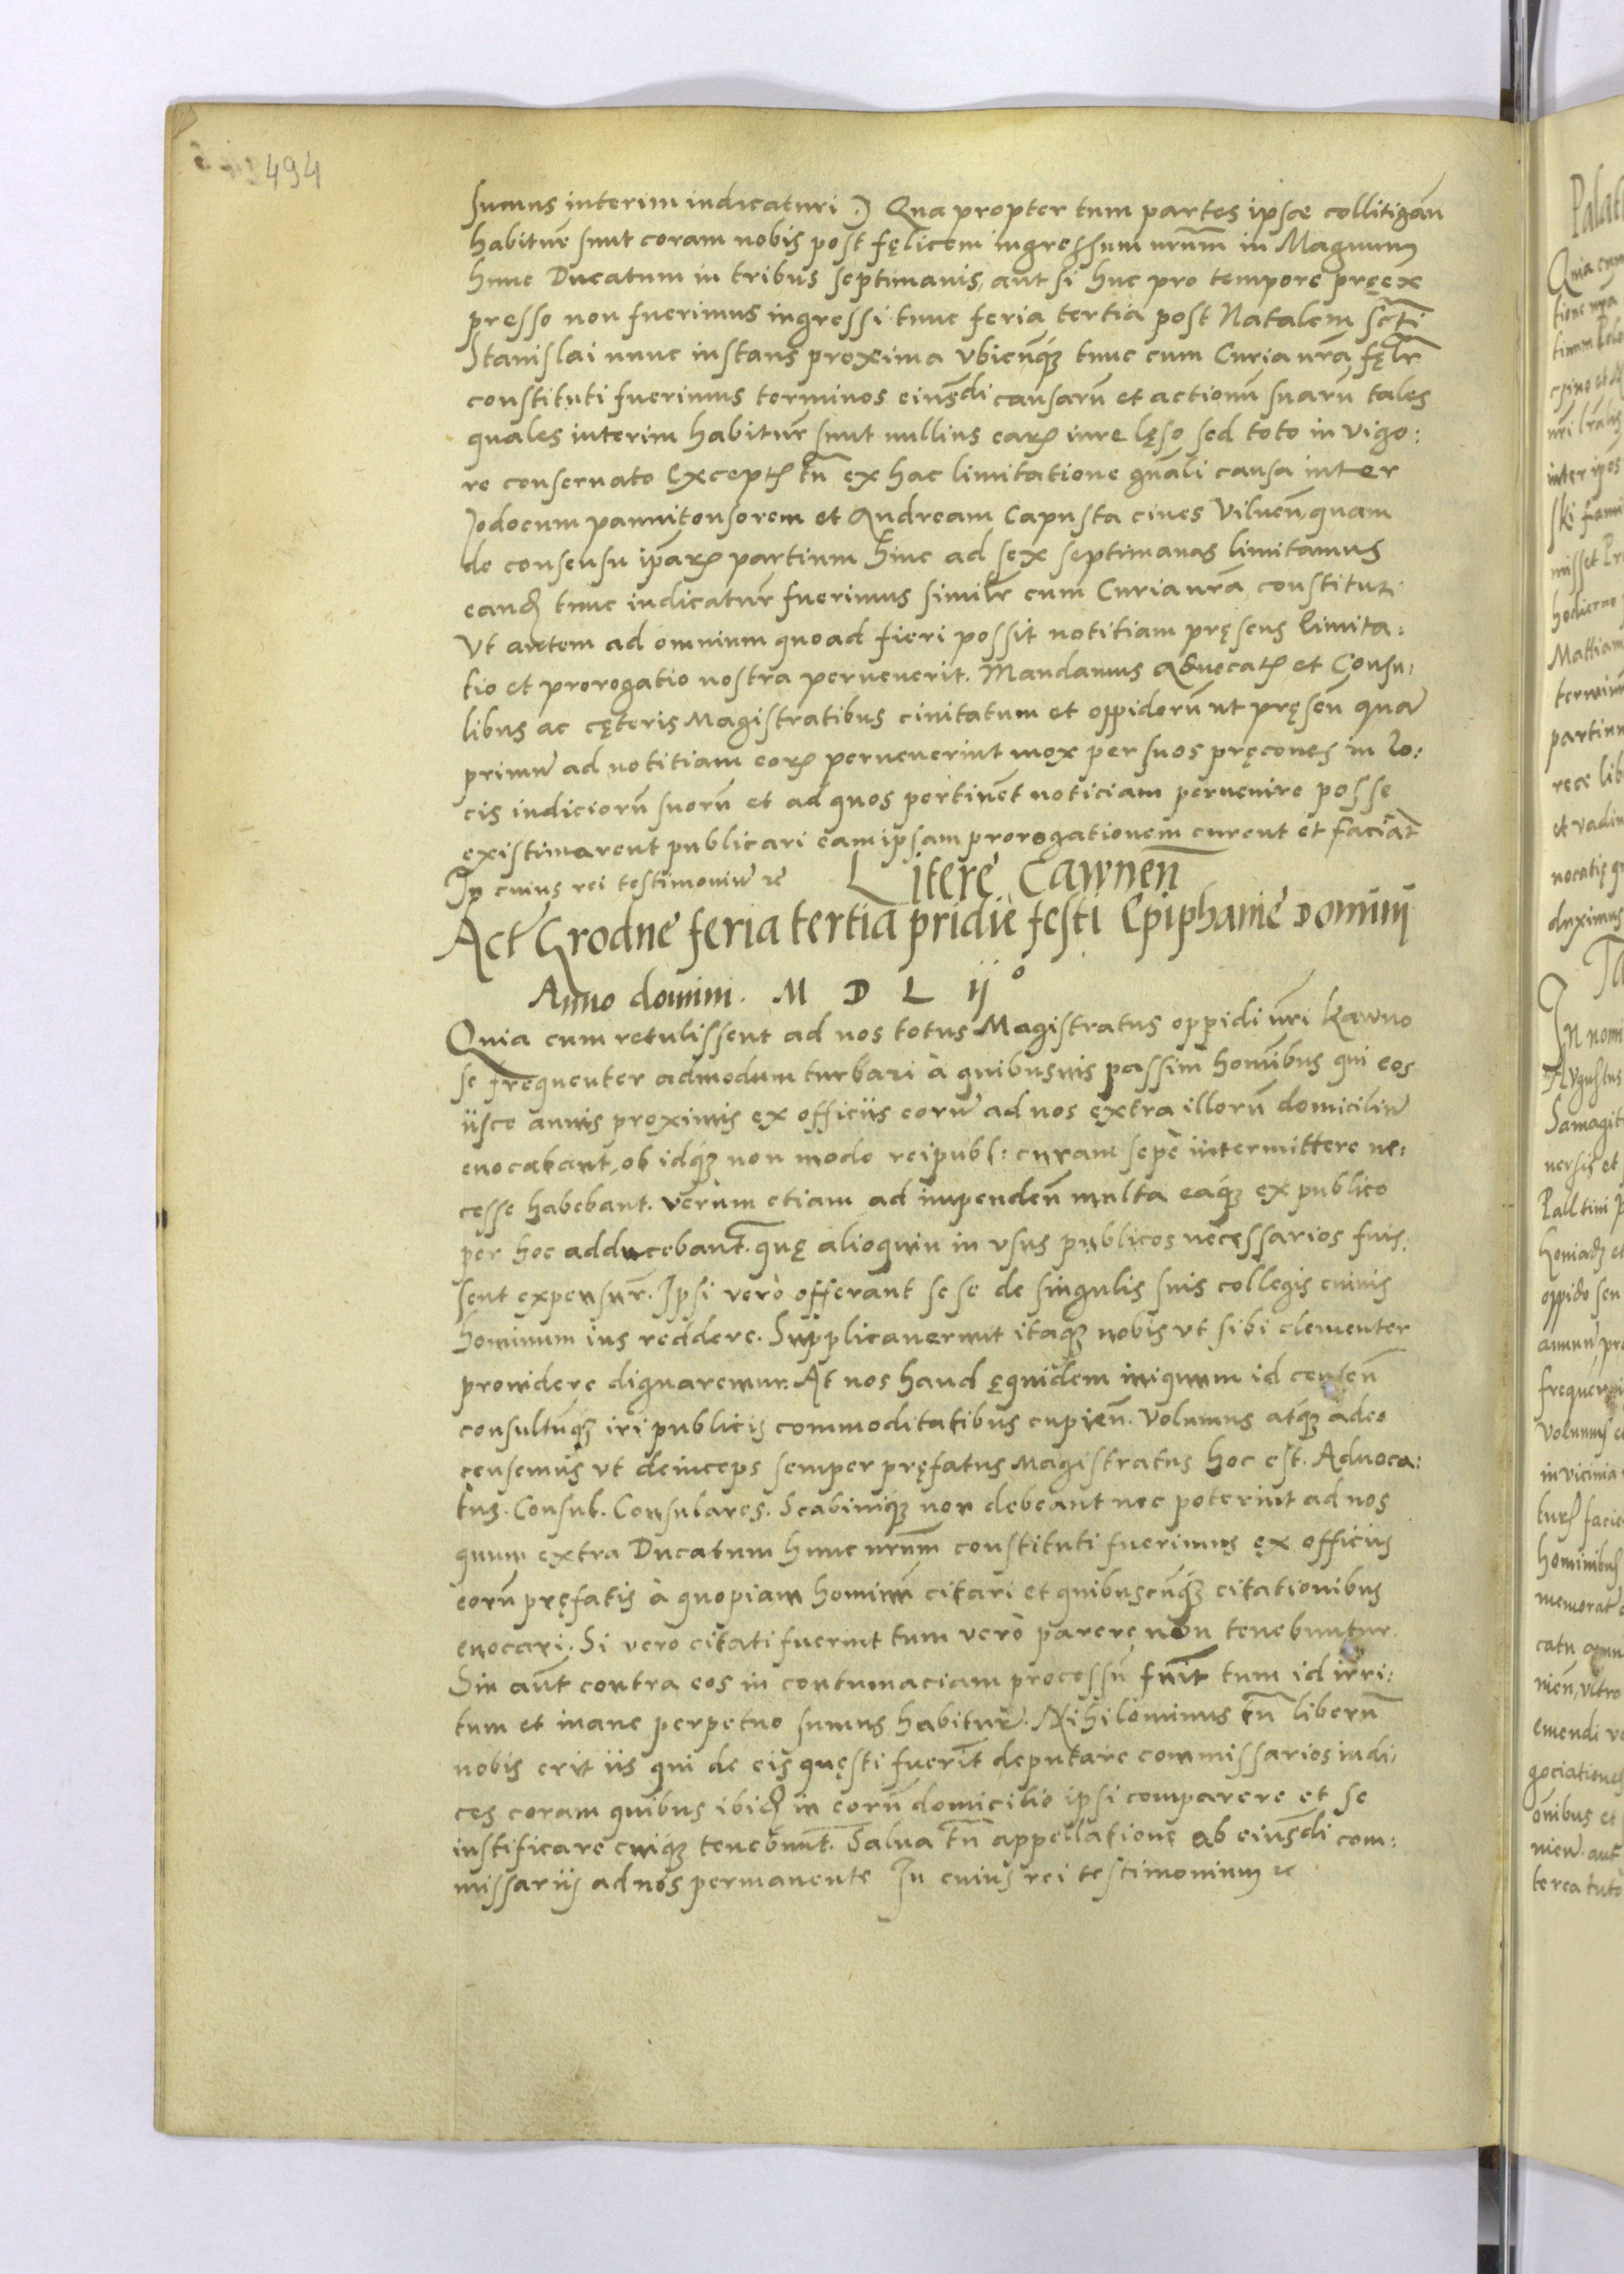 494
sumus interim iudicaturi .) Qua propter tum partes ipsæ collitigañ
habiture sunt coram nobis post fęlicem ingressum nr̃um in Magnum
hunc Ducatum in tribus septimanis, aut si huc pro tempore pręex
presso non fuerimus ingressi tunc feria tertia post Natalem Sc̃ti
Stanislai nunc instans proxima vbicunq3 tunc cum Curia nr̃a fęlr̃
constituti fuerimus terminos eiusdi causarũ et actionũ suarũ tales
quales interim habitur̃ sunt nullius earꝝ iure lęso sed toto in vigo:
re conseruato Exceptꝭ tñ ex hac limitatione gñali causa inter
Jodocum pannitonsorem et Andream Capusta ciues Vilneñ quam
de consensu ip̃arꝝ partium hinc ad sex septimanas limitamus
eandꝭ tunc iudicatur̃ fuerimus similr̃ cum Curia nr̃a constituti
Vt autem ad omnium quoad fieri possit notitiam pręsens limita:
tio et prorogatio nostra peruenerit. Mandamus Aduocatꝭ et Consu:
libus ac cęteris Magistratibus ciuitatum et oppidorũ ut pręseñ quã
primũ ad notitiam eorꝝ peruenerint mox per suos pręcones in lo:
cis iudiciorũ suorũ et ad quos pertinẽt noticiam peruenire posse
existimarent publicari eam ipsam prorogationem curent et faciãt
In cuius rei testimoniũ ꝛc
Litere Cawneñ
Act̃ Grodne feria tertia pridie festi Epiphanie Dominj
Anno domini. M D L ij°
Quia cum retulissent ad nos totus Magistratus oppidi nr̃i Kawno
se frequenter admodum turbari à quibusuis passim hom̃ibus qui eos
iisce annis proximis ex officiis eorũ ad nos extra illorũ domiciliũ
euocabant, ob idq3 non modo reipubl: curam sepe intermittere ne:
cesse habebant. verum etiam ad impendeñ multa eaq3 ex publico
per hoc adducebant̃. quę alioquin in vsus publicos necessarios fuis:
sent expensur̃. Ipsi verò offerant se se de singulis suis collegis cuiuis
hominum ius reddere. Supplicauerunt itaq3 nobis vt sibi clementer
prouidere dignaremur. At nos haud ęquidem iniquum id censeñ
consultũq3 iri publicis commoditatibus cupieñ. Volumus atq3 adeo
censemus vt deinceps semper pręfatus Magistratus hoc est. Aduoca:
tus. Consul. Consulares. Scabiniq3 non debeant nec poterint ad nos
quum extra Ducatum hunc nr̃um constituti fuerimus ex officiis
eorũ pręfatis à quopiam hominũ citari et quibuscũq3 citationibus
euocari. Si vero citati fuerint tum verò parere non tenebuntur.
Sin aut̃ contra eos in contumaciam processũ fuit̃ tum id irri:
tum et inane perpetuo sumus habitur̃. Nihilominus tñ liberũ
nobis erit iis qui de eis quęsti fuerit̃ deputare commissarios iudi:
ces coram quibus ibidꝭ in eorũ domicilio ipsi comparere et se
iustificare cuiq3 tenebunt̃. Salua tñ appellatione ab eiusdi com:
missariis ad nos permanente In cuius rei testimonium ꝛc